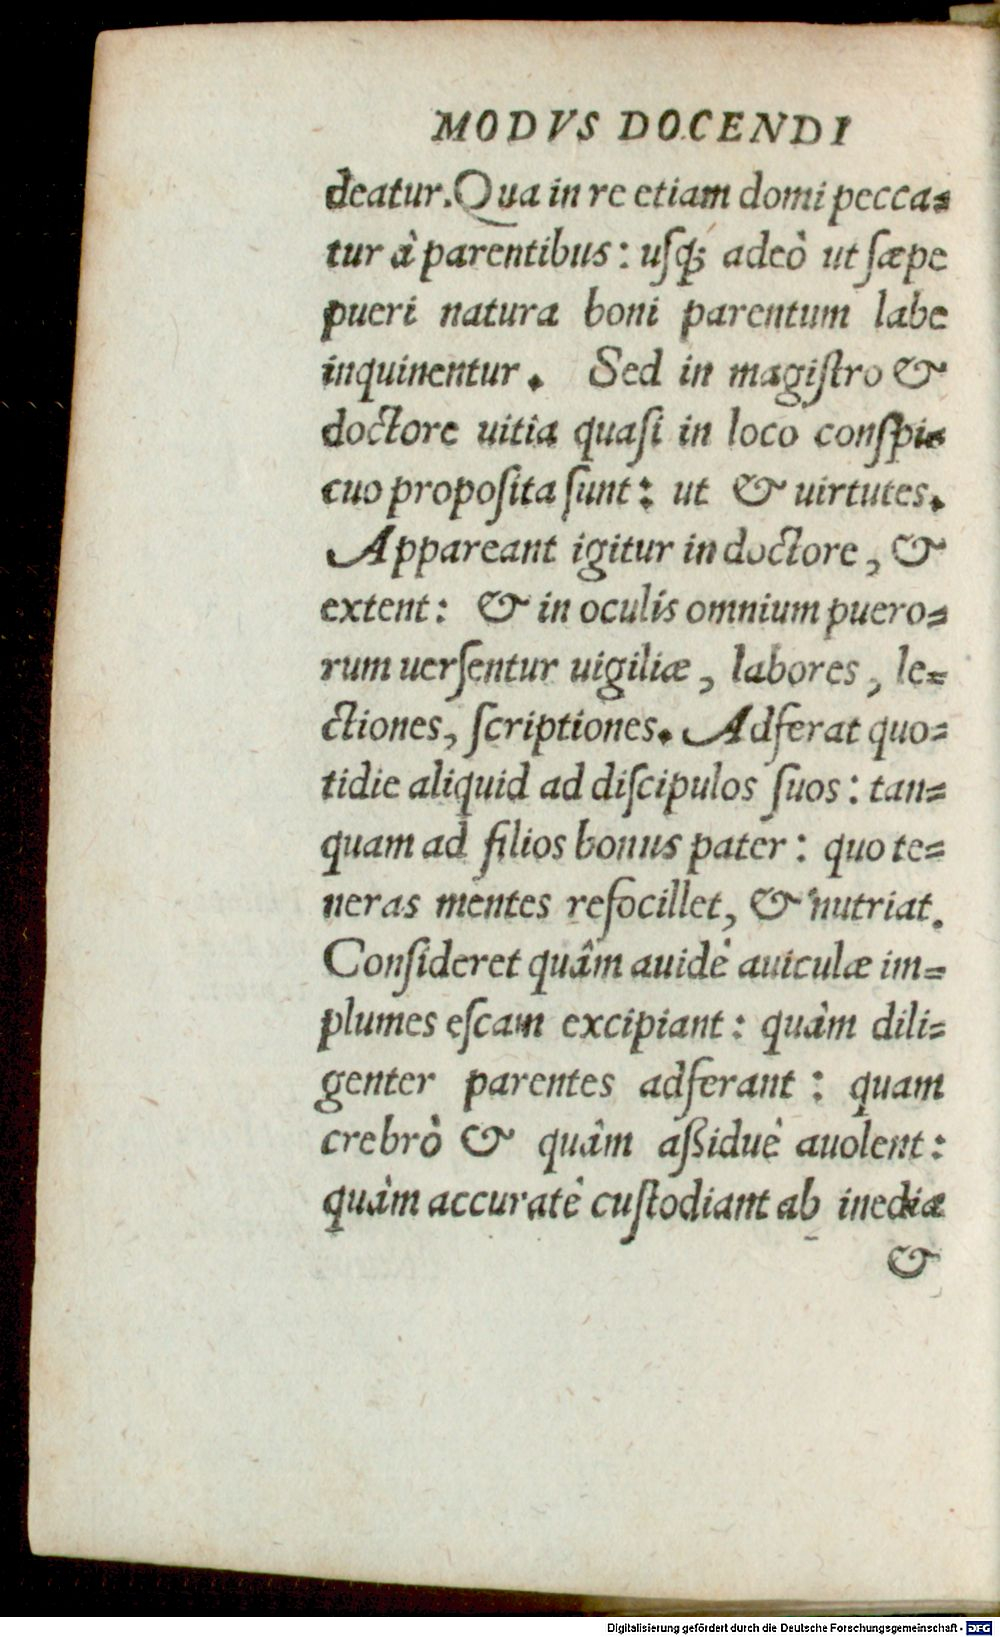 MODVS DOCENDI
deatur. Qua in re etiam domi pecca=
tur à parentibus: usq́; adeò ut sæpe
pueri natura boni parentum labe
inquinentur. Sed in magiſtro &
doctore uitia quaſi in loco conſpi=
cuo propoſita ſunt: ut & uirtutes.
Appareant igitur in doctore, &
extent: & in oculis omnium puero=
rum uerſentur uigiliæ, labores, le=
ctiones, ſcriptiones. Adferat quo=
tidie aliquid ad diſcipulos ſuos: tan=
quam ad filios bonus pater: quo te=
neras mentes refocillet, & nutriat.
Conſideret quâm auidè auiculæ im=
plumes eſcam excipiant: quàm dili=
genter parentes adferant: quam
crebrò & quâm aſsiduè auolent:
quàm accuratè cuſtodiant ab inedia
&
Digitalisierung gefördert durch die Deutsche Forschungsgemeinschaft - DFG